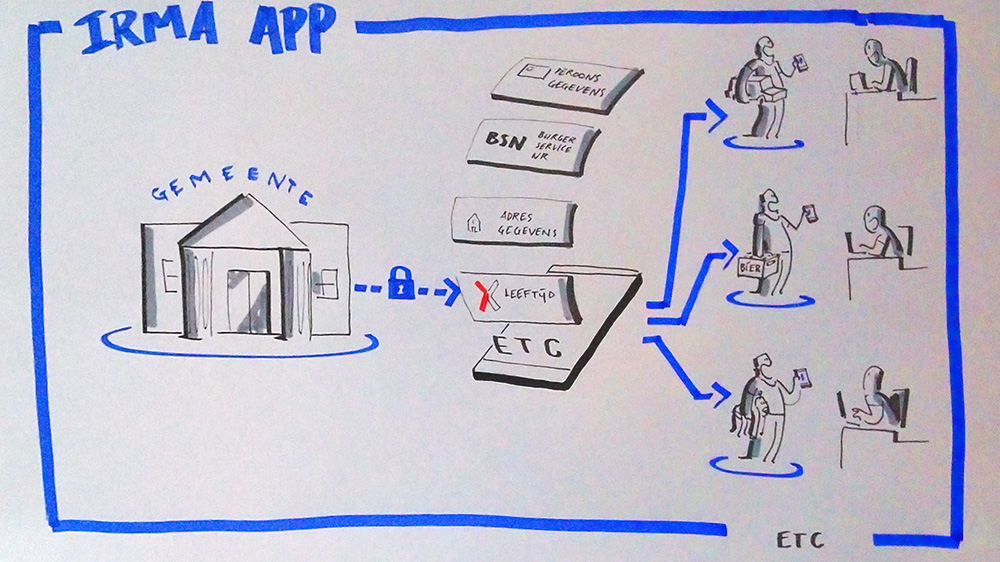 IRMA APP
GEMEENTE
PERSONS
GEGEVENS
BSN BURGER
SERVICE
NR
ADRES
GEGEVENS
LEEFTIJD
ETC
BIER
ETC